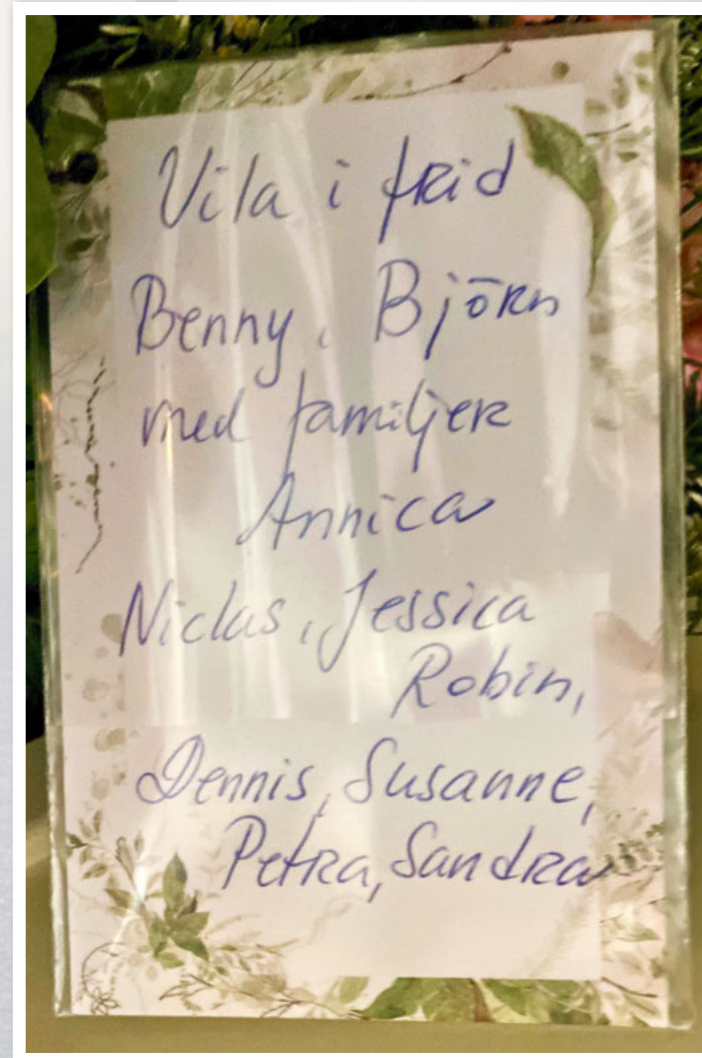 Vila i frid
Benny, Björn
med familjer
Annica
Niclas, Jessica
Robin,
Dennis, Susanne,
Petra, Sandra